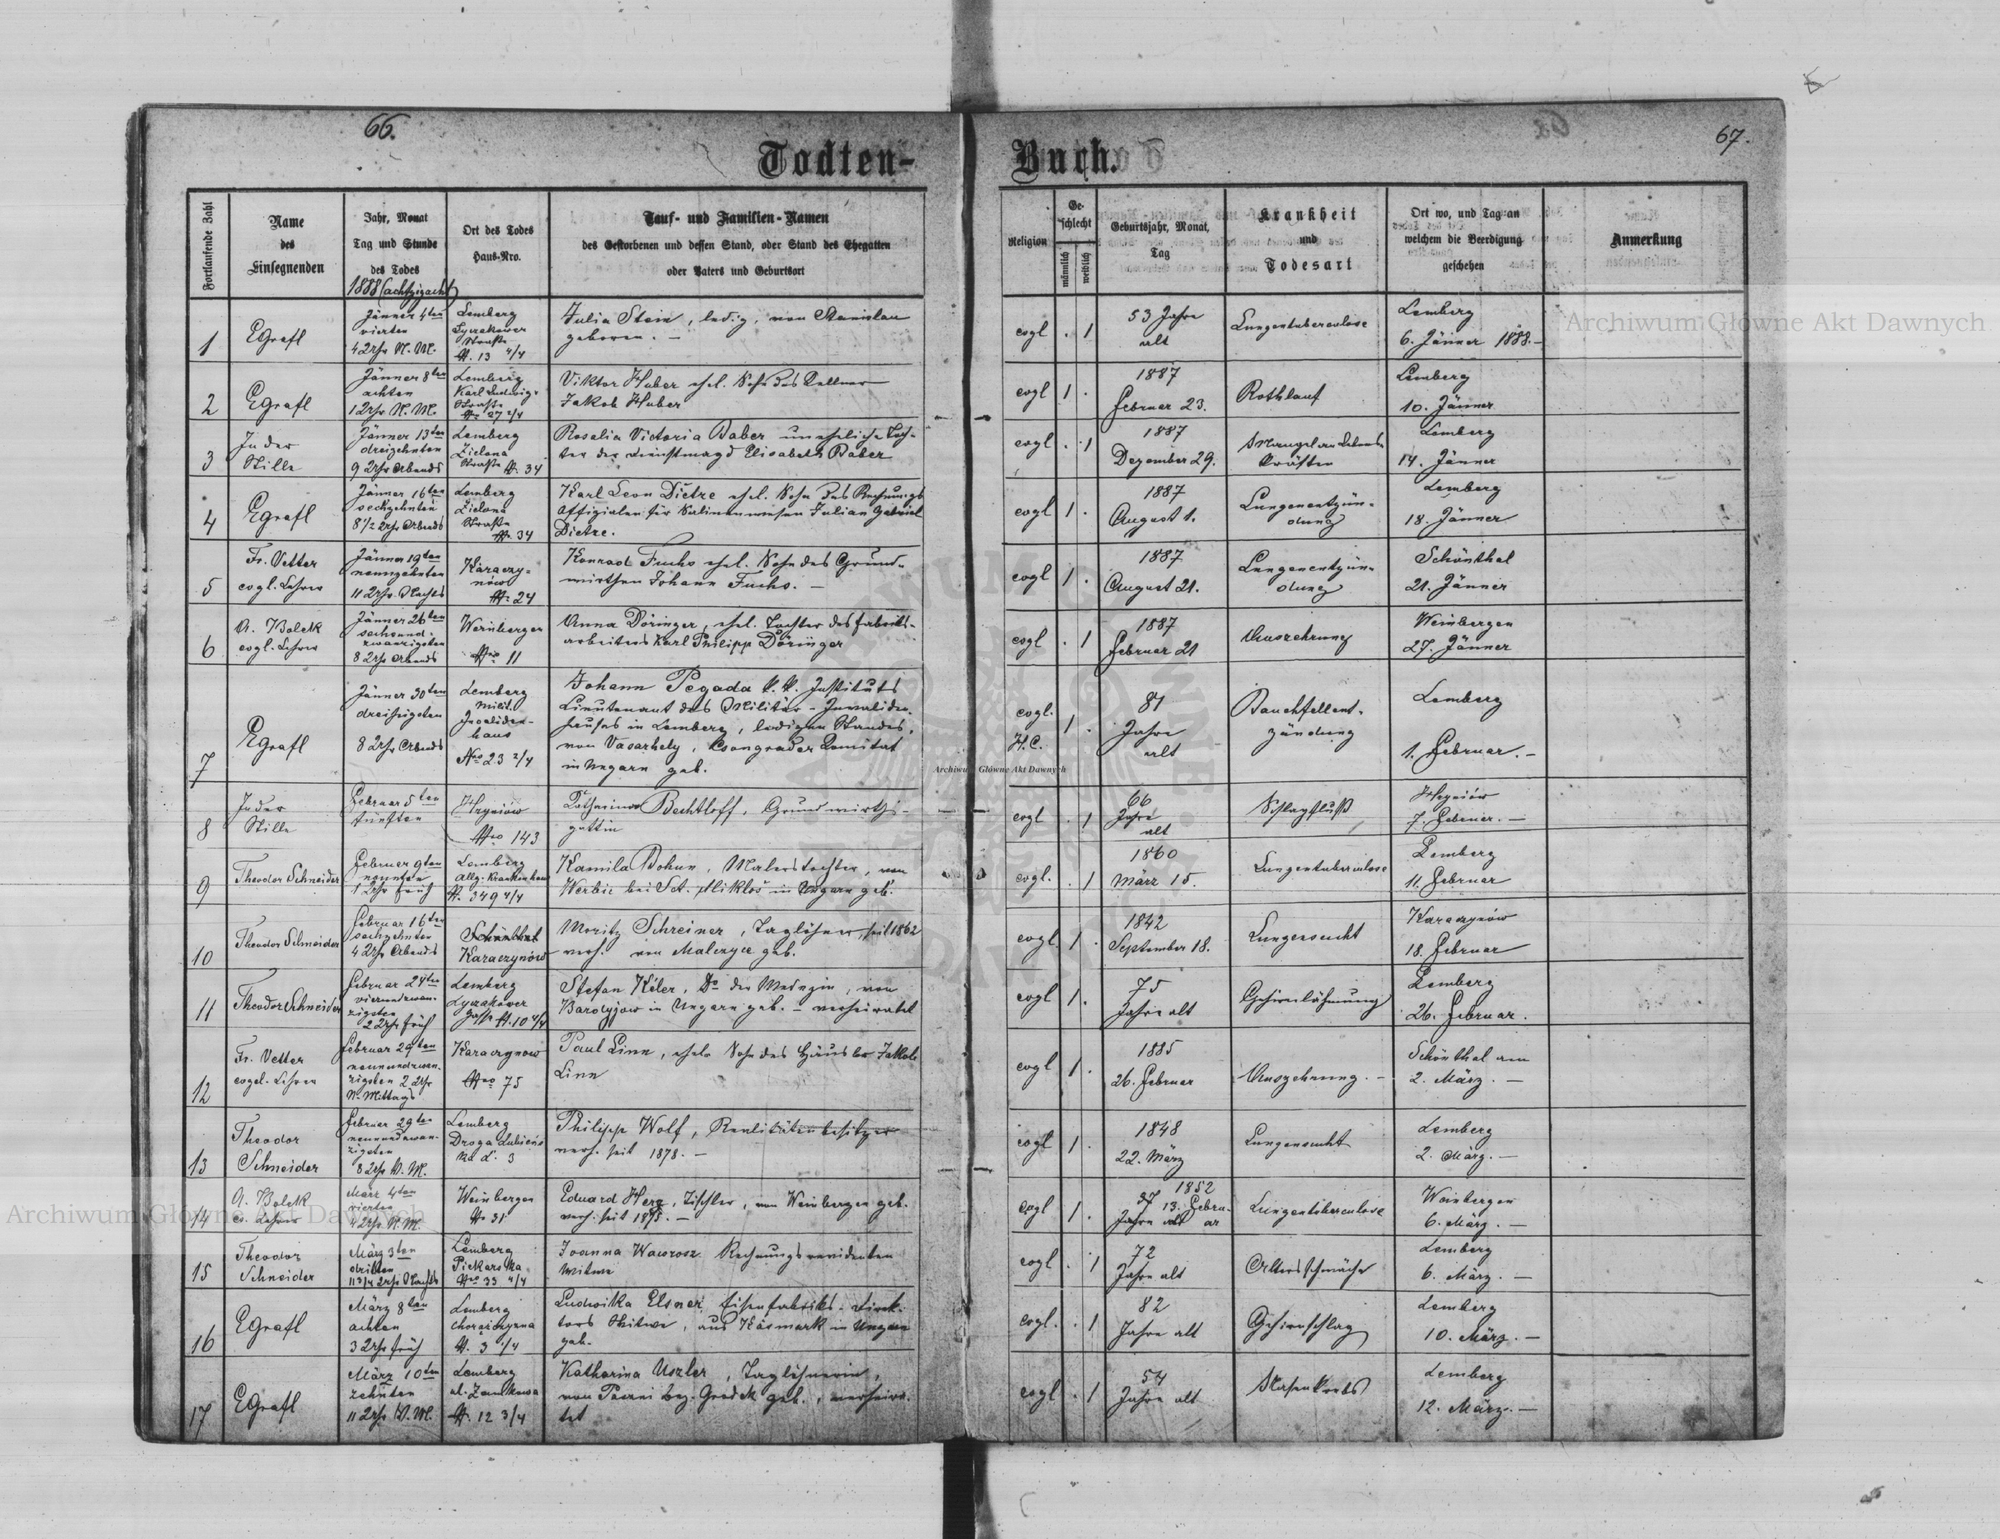 66.
67.
Todten-
Buch.
Fortlaufende Zahl
Name
des
Einsegnenden
Jahr, Monat
Tag und Stunde
des Todes
1888 (achtzigacht)
Ort des Todes
Haus-Nro.
Tauf- und Familien-Namen
des Gestorbenen und dessen Stand, oder Stand des Ehegatten
oder Vaters und Geburtsort
Religion
Ge-
schlecht
männlich
weiblich
Geburtsjahr, Monat,
Tag
Krankheit
und
Todesart
Ort wo, und Tag an
welchem die Beerdigung
geschehen
Anmerkung
1
EGrafl
Jänner 4ten
vierten
4 Uhr N. M.
Lemberg
Lyczakower
Straße
N. 13 4/4
Julia Stein, ledig, von Stanislau
geboren. —
evgl
. 1
53 Jahre
alt
Lungentuberculose
Lemberg
6. Jänner 1888. —
2
EGrafl
Jänner 8ten
achten
1 Uhr N. M.
Lemberg
Karl Ludwig-
Straße
N. 27 2/4
Viktor Huber ehel. Sohn des Kellner
Jakob Huber
evgl
1 .
1887
Februar 23.
Rothlauf
Lemberg
10. Jänner
3
In der
Stille
Jänner 13ten
dreizehnten
9 Uhr Abends
Lemberg
Zielona
Straße N. 34
Rosalia Victoria Baber uneheliche Toch-
ter der Dienstmagd Elisabeth Baber
evgl
. 1
1887
Dezember 29.
Mangel an Lebens
kräften
Lemberg
14. Jänner
4
EGrafl
Jänner 16ten
sechzehnten
8 1/2 Uhr Abends
Lemberg
Zielona
Straße
N. 34
Karl Leon Dietze ehel. Sohn des Rechnungs
Offizialen für Salinenwesen Julian Gabriel
Dietze.
evgl
1 .
1887
August 1.
Lungenentzün-
dung
Lemberg
18. Jänner
5
Fr. Vetter
evgl. Lehrer
Jänner 19ten
neunzehnten
11 Uhr Nachts
Karaczy-
nów
N. 24
Konrad Fuchs ehel. Sohn des Grund-
wirthen Johann Fuchs. —
evgl
1 .
1887
August 21.
Lungenentzün-
dung
Schönthal
21. Jänner
6
A. Bolek
evgl. Lehrer
Jänner 26ten
sechsund-
zwanzigsten
8 Uhr Abends
Weinbergen
Nro 11
Anna Döringer, ehel. Tochter des Fabriks-
arbeiters Karl Philipp Döringer
evgl
. 1
1887
Februar 21
Auszehrung
Weinbergen
27. Jänner
7
EGrafl
Jänner 30ten
dreißigsten
8 Uhr Abends
Lemberg
Milit.
Invaliden-
haus
Nro 23 2/4
Johann Pegada k. k. Instituts
Lieutenant des Militär-Invaliden-
hauses in Lemberg, ledigen Standes,
von Vasarhely, Csongrader Comitat
in Ungarn geb.
evgl.
H. C.
1 .
81
Jahre
alt
Bauchfellent-
zündung
Lemberg
1. Februar. —
8
In der
Stille
Februar 5ten
fünften
Nro 143
Bechtloff, Grundwirths-
gattin
evgl
. 1
66
Jahre
alt
Schlagfluß
7. Februar. —
9
Theodor Schneider
Februar 9ten
neunten
1 Uhr früh
Lemberg
Allg. Krankenhaus
N. 349 4/4
Kamila Bohun, Malerstochter, von
Werbic bei Sct. Miklos in Ungarn geb.
evgl.
. 1
1860
März 15.
Lungentuberculose
Lemberg
11. Februar
10
Theodor Schneider
Februar 16ten
sechzehnten
4 Uhr Abends
Schönthal
Karaczynów
Moritz Schreiner, Taglöhner, seit 1862
verh. von geb.
evgl
1 .
1842
September 18.
Lungensucht
Karaczynów
18. Februar
11
Theodor Schneider
Februar 24ten
vierundzwan-
zigsten
2 Uhr früh
Lemberg
Lyczakower
Gasse N. 10 4/4
Stefan Kéler, Dr der Medizin, von
in Ungarn geb. — verheiratet
evgl
1 .
75
Jahre alt
Gehirnlähmung
Lemberg
26. Februar.
12
Fr. Vetter
evgel. Lehrer
Februar 29ten
neunundzwan-
zigsten 2 Uhr
N. Mittags
Karaczynow
Nro 75
Paul Linn, ehel. Sohn des Häusler Jakob
Linn
evgl
1 .
1885
26. Februar
Auszehrung. —
Schönthal am
2. März. —
13
Theodor
Schneider
Februar 29ten
neunundzwan-
zigsten
8 Uhr V. M.
Lemberg
Droga Lubień
ka L. 3
Philipp Wolf, Realitätenbesitzer
verh. seit 1878. —
evgl
1 .
1848
22. März
Lungensucht
Lemberg
2. März. —
14
A. Bolek
ev. Lehrer
März 4ten
vierten
4 Uhr N. M.
Weinbergen
N. 31
Eduard Herz, Tischler, von Weinbergen geb.
verh. seit 1875. —
evgl
1 .
1852
37 13. Febru-
Jahre alt ar
Lungentuberculose
Weinbergen
6. März. —
15
Theodor
Schneider
März 3ten
dritten
11 3/4 Uhr Nachts
Lemberg
Piekarska
Nro 33 4/4
Joanna Wawrosz Rechnungsrevidenten
Witwe
evgl
. 1
72
Jahre alt
Altersschwäche
Lemberg
6. März. —
16
EGrafl
März 8ten
achten
3 Uhr früh
Lemberg
Chorążczyzna
N. 3 1/4
Ludwika Elsner, Eisenfabriks-Direk-
tors Witwe, aus Käsmark in Ungarn
geb.
evgl.
. 1
82
Jahre alt
Gehirnschlag
Lemberg
10. März. —
17
EGrafl
März 10ten
zehnten
11 Uhr V. M.
Lemberg
ul. Zamkowa
N. 12 3/4
Katharina Uszler, Taglöhnerin,
von Bez. Grodek geb., verheira-
tet
evgl
. 1
54
Jahre alt
Nasenkrebs
Lemberg
12. März. —
Archiwum Główne Akt Dawnych
Archiwum Główne Akt Dawnych
Archiwum Główne Akt Dawnych